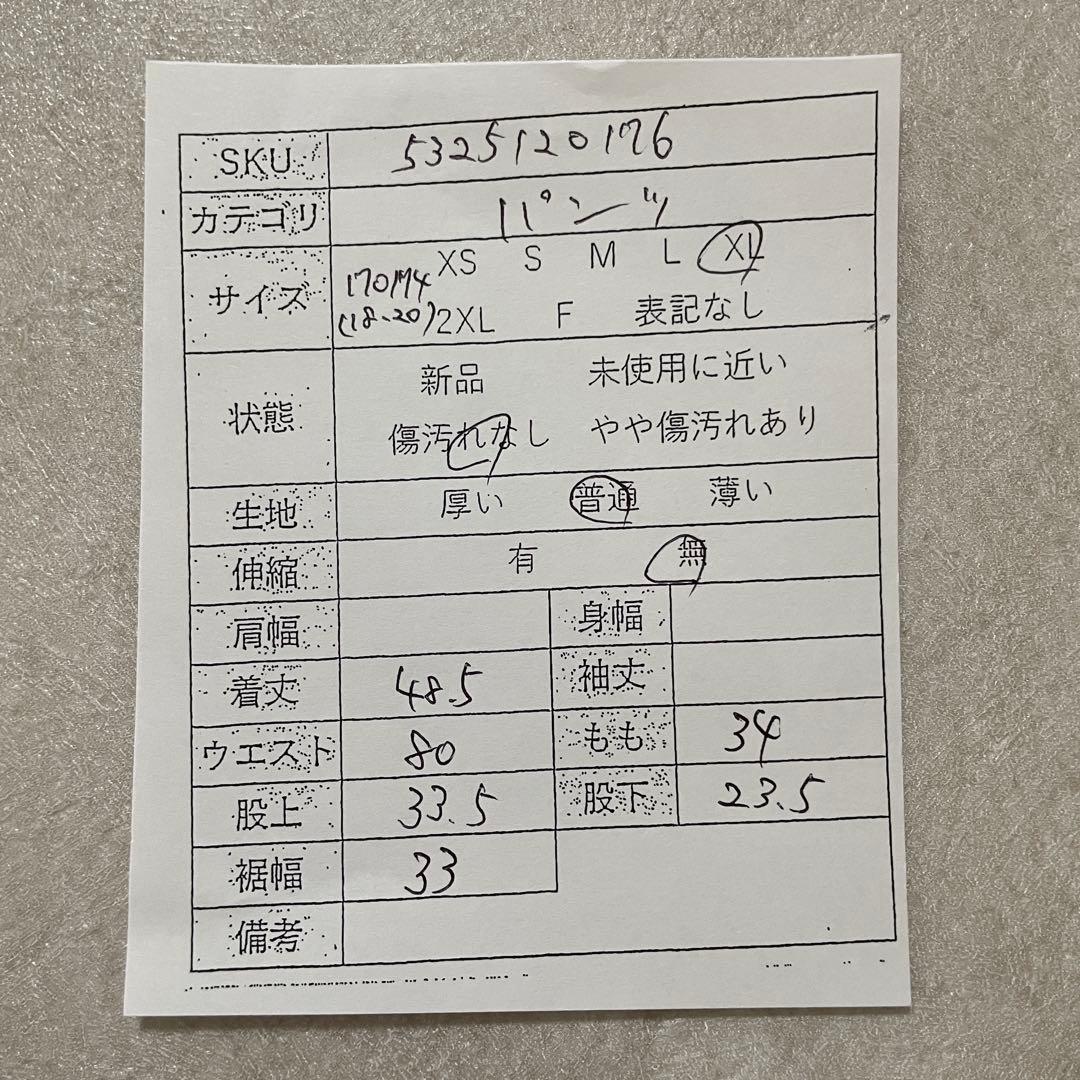 SKU 5325120176
カテゴリ パンツ
サイズ XS S M L XL
170174
(18-20) 2XL F 表記なし
状態 新品 未使用に近い
傷汚れなし やや傷汚れあり
生地 厚い 普通 薄い
伸縮 有 無
肩幅 身幅
着丈 48.5 袖丈
ウエスト 80 もも 34
股上 33.5 股下 23.5
裾幅 33
備考